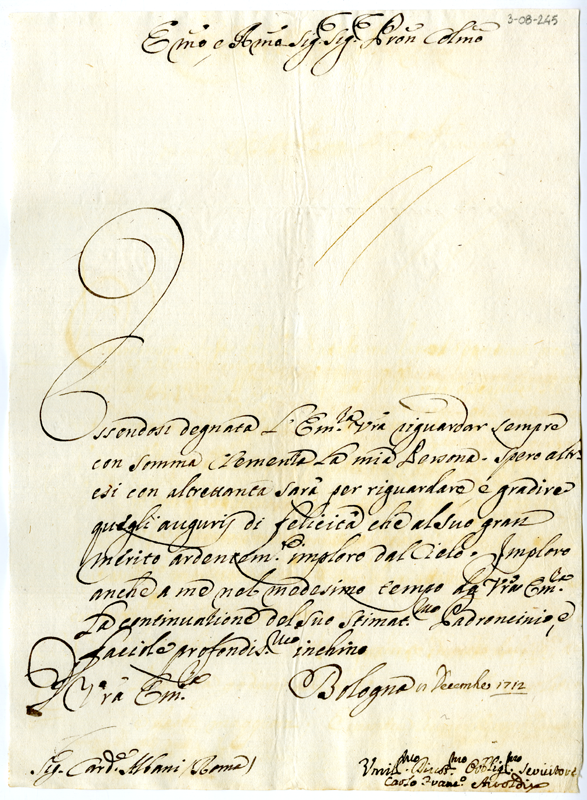 3-08-245
Emo e Rmo Sig. Sig. Pron Colmo
Essendosi degnata L'Em.za Vra riguardar sempre
con somma Clemenza La mia Persona. Spero altr-
esi con altrettanta sarà per riguardare e gradire
quegli augurij di felicità che al suo gran
merito ardentem.te imploro dal Cielo. Imploro
anche a me nel medesimo tempo da Vra Em.za
La continuatione del suo stimat.mo Padrocinio, e
faciole profondis.mo inchino
Di Vra Em.za
Bologna Decembre 1712
Sig. Card.le Albani (Roma)
Umil.mo Divot.mo Obblig.mo Servitore